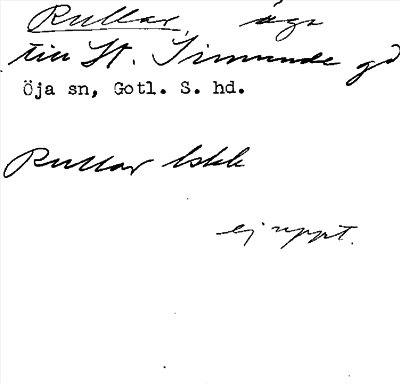 Rullar, ägs
till St. Simunde gd
Öja sn, Gotl. S. hd.
Rullar lskk
ej uppt.